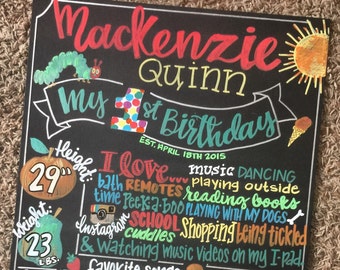 Mackenzie
Quinn
My 1st Birthday
EST. APRIL 18TH 2015
Height:
29"
Weight:
23
LBS.
I love...
music DANCING
bath time
REMOTES playing outside
Peek-a-boo reading books
Instagram
SCHOOL
PLAYING WITH MY DOGS
cuddles
Shopping being tickled
& Watching music videos on my I-pad
favorite songs